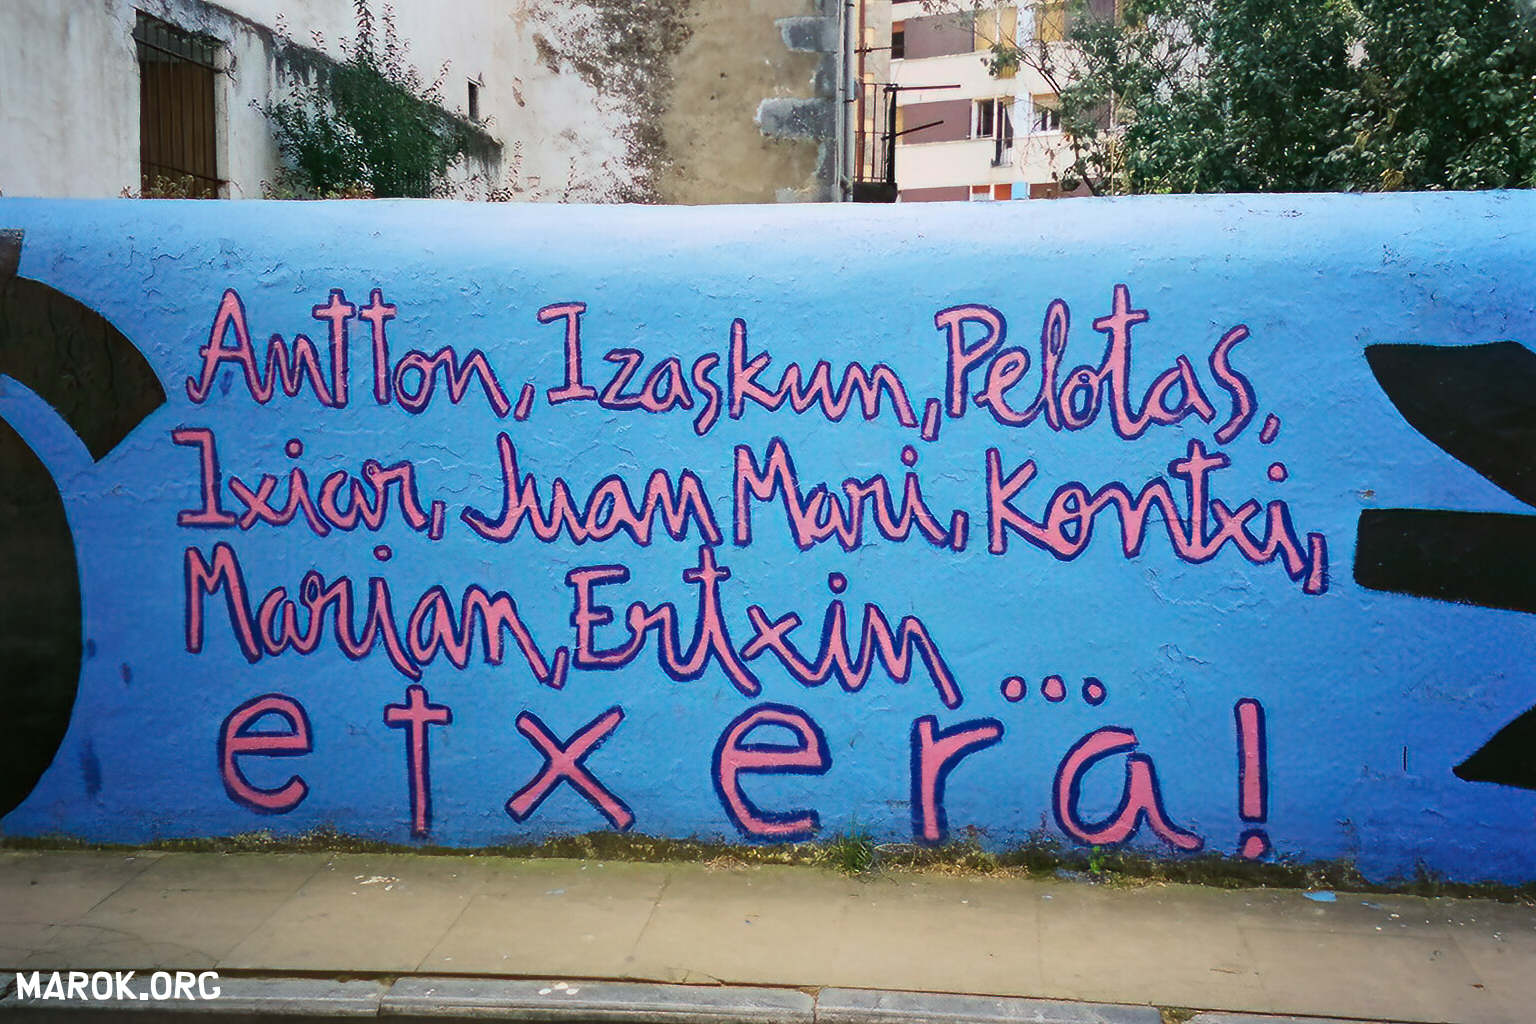 Antton, Izaskun, Pelotas,
Ixiar, Juan Mari, Kontxi,
Marian, Ertxin ...
etxera!
MAROK.ORG